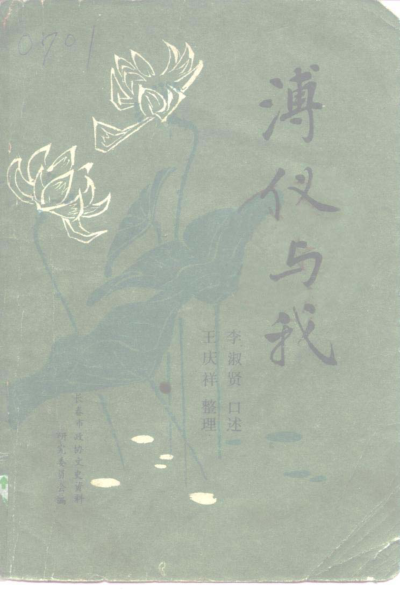 0701
溥仪与我
李淑贤 口述
王庆祥 整理
长春市政协文史资料
研究委员会编